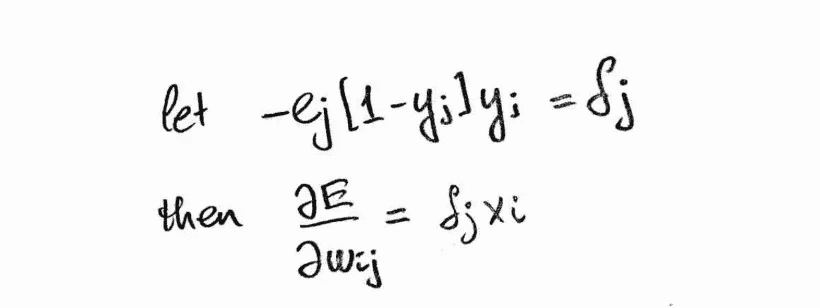 let -ej[1-yj]yj = δj
then ∂E/∂wij = δj xi